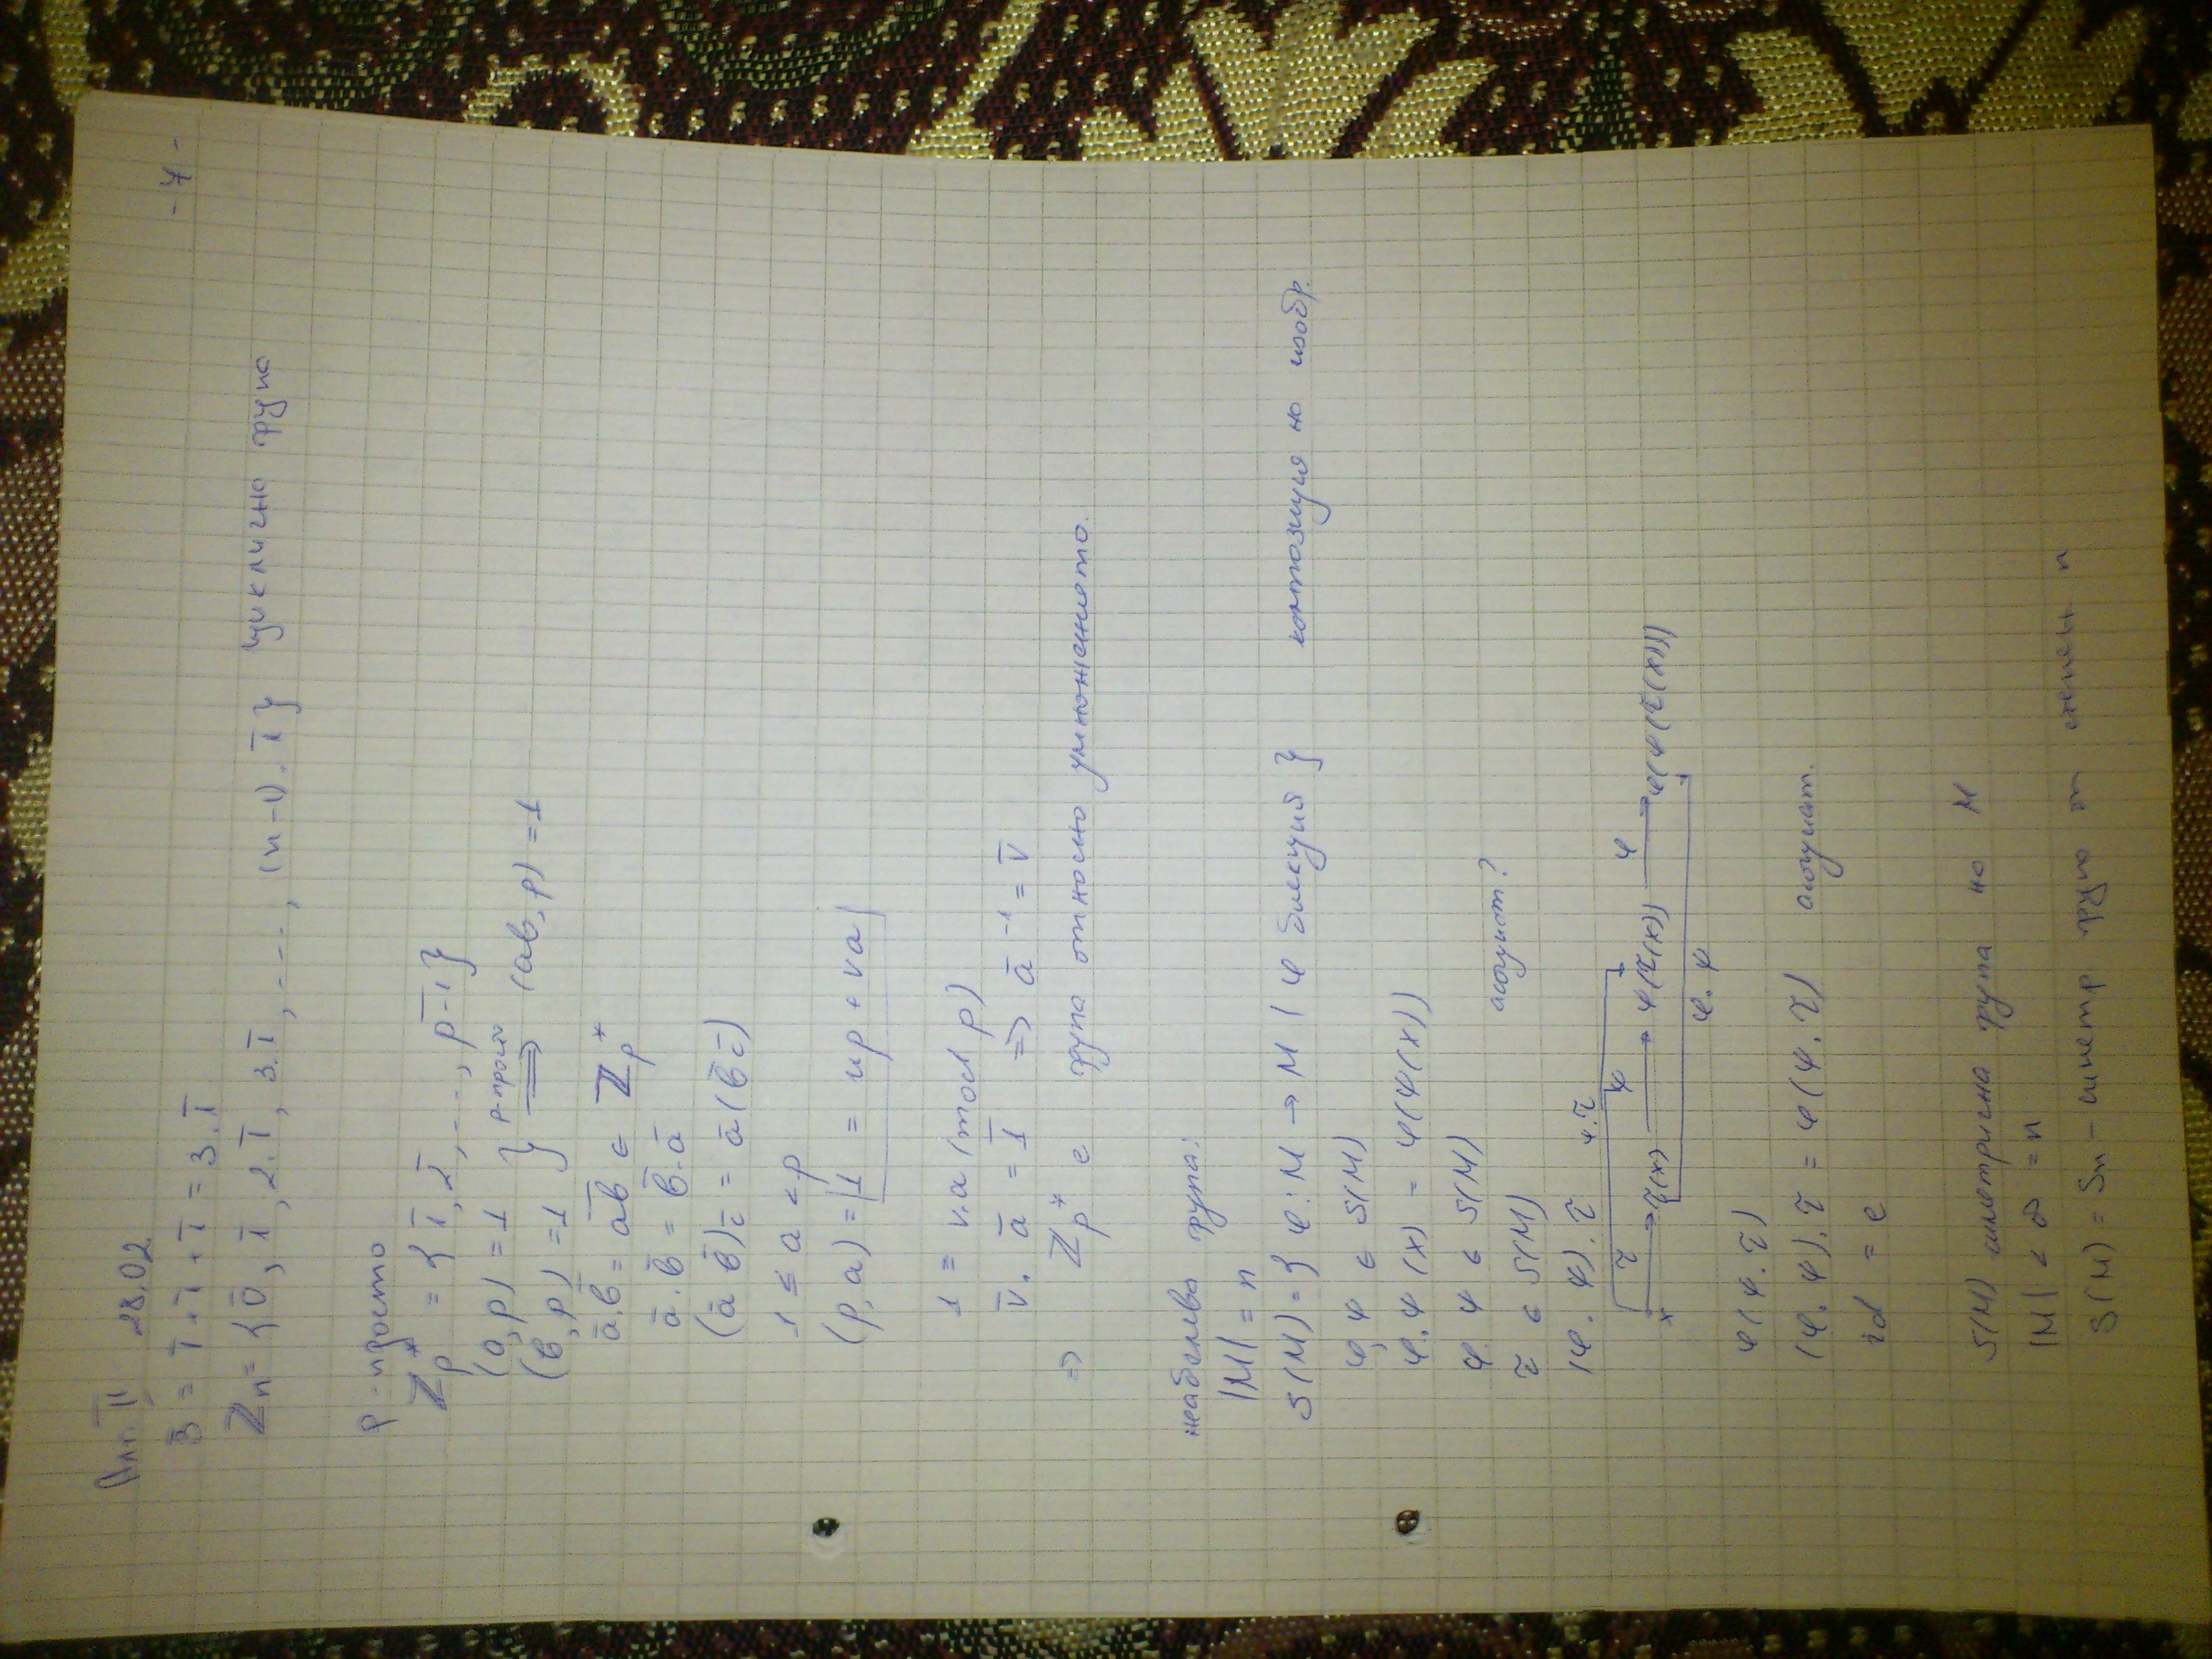 -4-
Алг. II 28.02
3̄ = 1̄ + 1̄ + 1̄ = 3.1̄
ℤn = {0̄, 1̄, 2.1̄, 3.1̄, ..., (n-1).1̄} циклична група
p - просто
ℤp* = {1̄, 2̄, ..., p̅-̅1̅}
(a, p) = 1 } p-просто
(b, p) = 1 } ⟹ (ab, p) = 1
ā.b̄ = a̅b̅ ∈ ℤp*
ā.b̄ = b̄.ā
(ā b̄)c̄ = ā(b̄ c̄)
1 ≤ a < p
(p, a) = 1 = up + va
1 ≡ v.a (mod p)
v̄.ā = 1̄ => ā⁻¹ = v̄
=> ℤp* е група относно умножението.
неабелева група:
|M| = n
S(M) = {φ: M → M | φ биекция} композиция на изобр.
φ, ψ ∈ S(M)
φ.ψ (x) = φ(ψ(x))
φ.ψ ∈ S(M)
τ ∈ S(M) асоциат?
(φ.ψ).τ ψ.τ
x τ → τ(x) ψ → ψ(τ(x)) φ → φ(ψ(τ(x)))
φ.ψ
φ(ψ.τ)
(φ.ψ).τ = φ(ψ.τ) асоциат.
id = e
S(M) симетрична група на M
|M| < ∞ = n
S(M) = Sn - симетр група от степен n